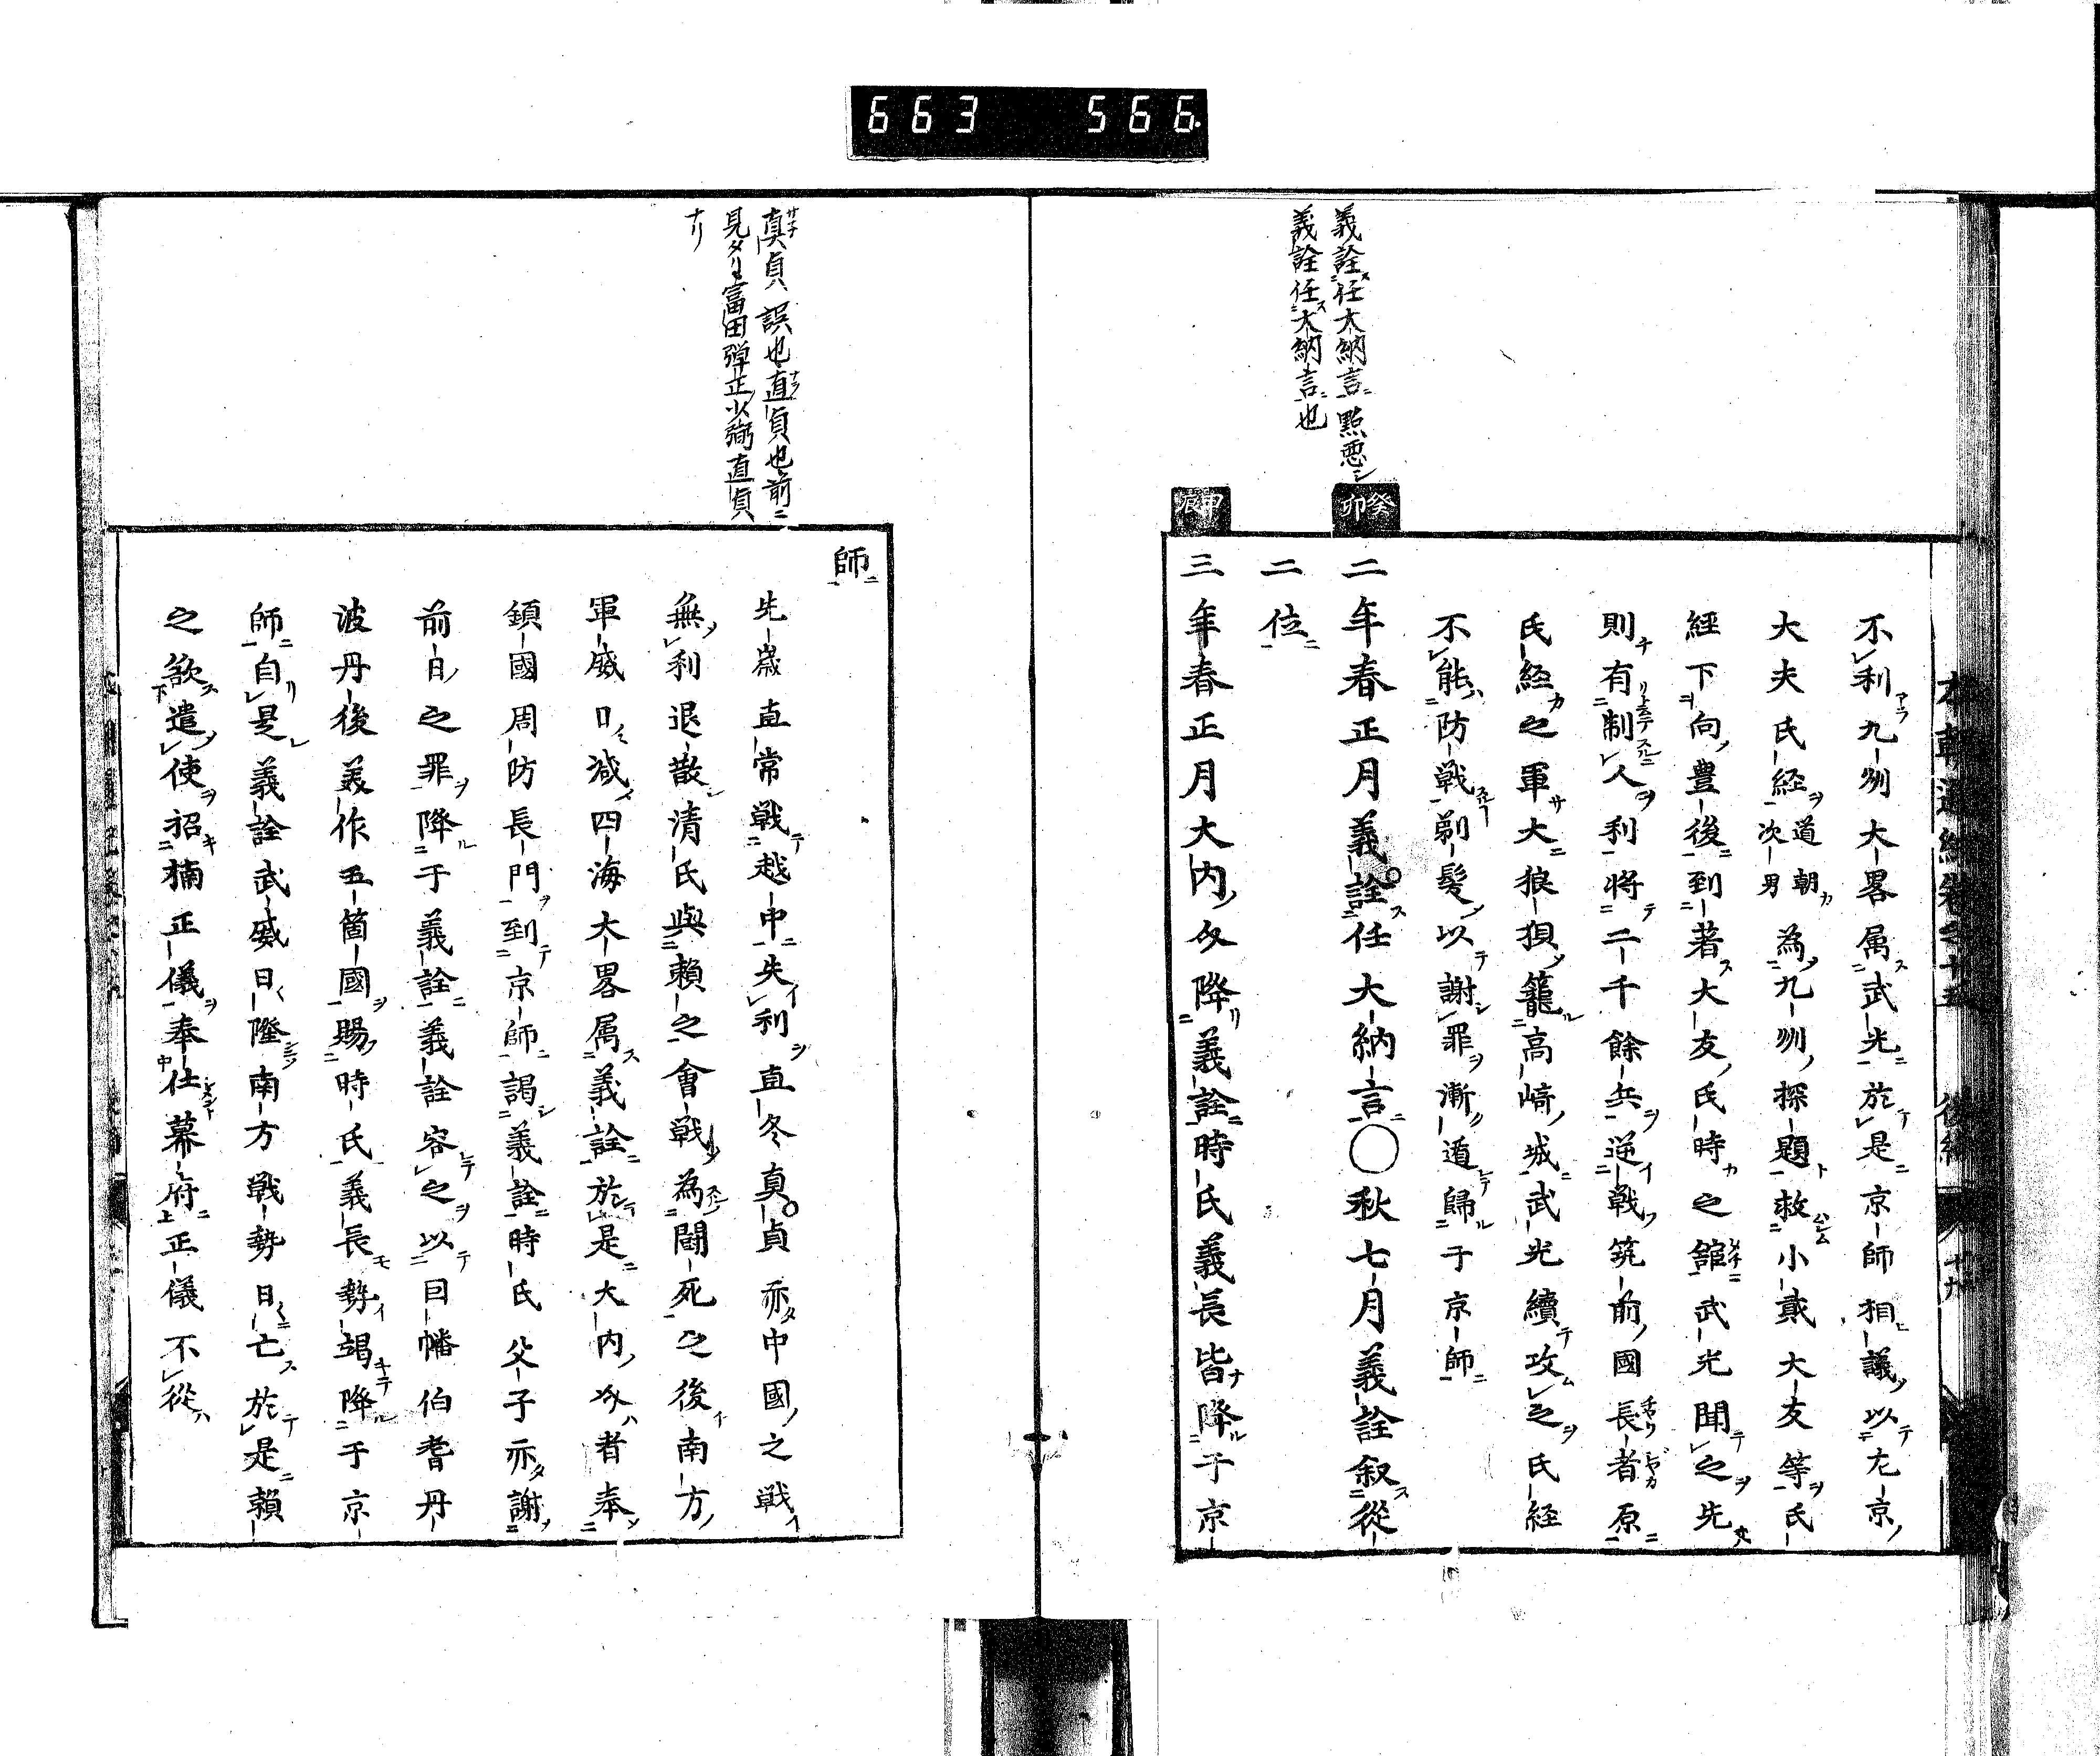 663 566.
義詮任大納言點悪シ
義詮任大納言也
癸卯
甲辰
不利九州大畧属武光於是京師相議以左京
大夫氏経道朝次男為九州探題救小貳大友等氏
経下向豊後到著大友氏時之舘武光聞之先
則有制人利將二千餘兵逆戰筑前國長者原
氏経之軍大狼狽籠高﨑城武光續攻之氏経
不能防戰剃髪以謝罪漸遁歸于京師
二年春正月義詮任大納言○秋七月義詮叙従
二位
三年春正月大内介降義詮時氏義長皆降于京
師
眞貞誤也直貞也前ニ
見タリ冨田弾正少弼直貞
ナリ
先歳直常戰越中失利直冬眞貞亦中國之戰
無利退散清氏與頼之會戰為闘死之後南方
軍威日減四海大畧属義詮於是大内介者奉
鎮國周防長門到京師謁義詮時氏父子亦謝
前日之罪降于義詮義詮容之以因幡伯耆丹
波丹後美作五箇國賜時氏義長勢竭降于京
師自是義詮武威日隆南方戰勢日亡於是頼
之欲遣使招楠正儀奉仕幕府正儀不從